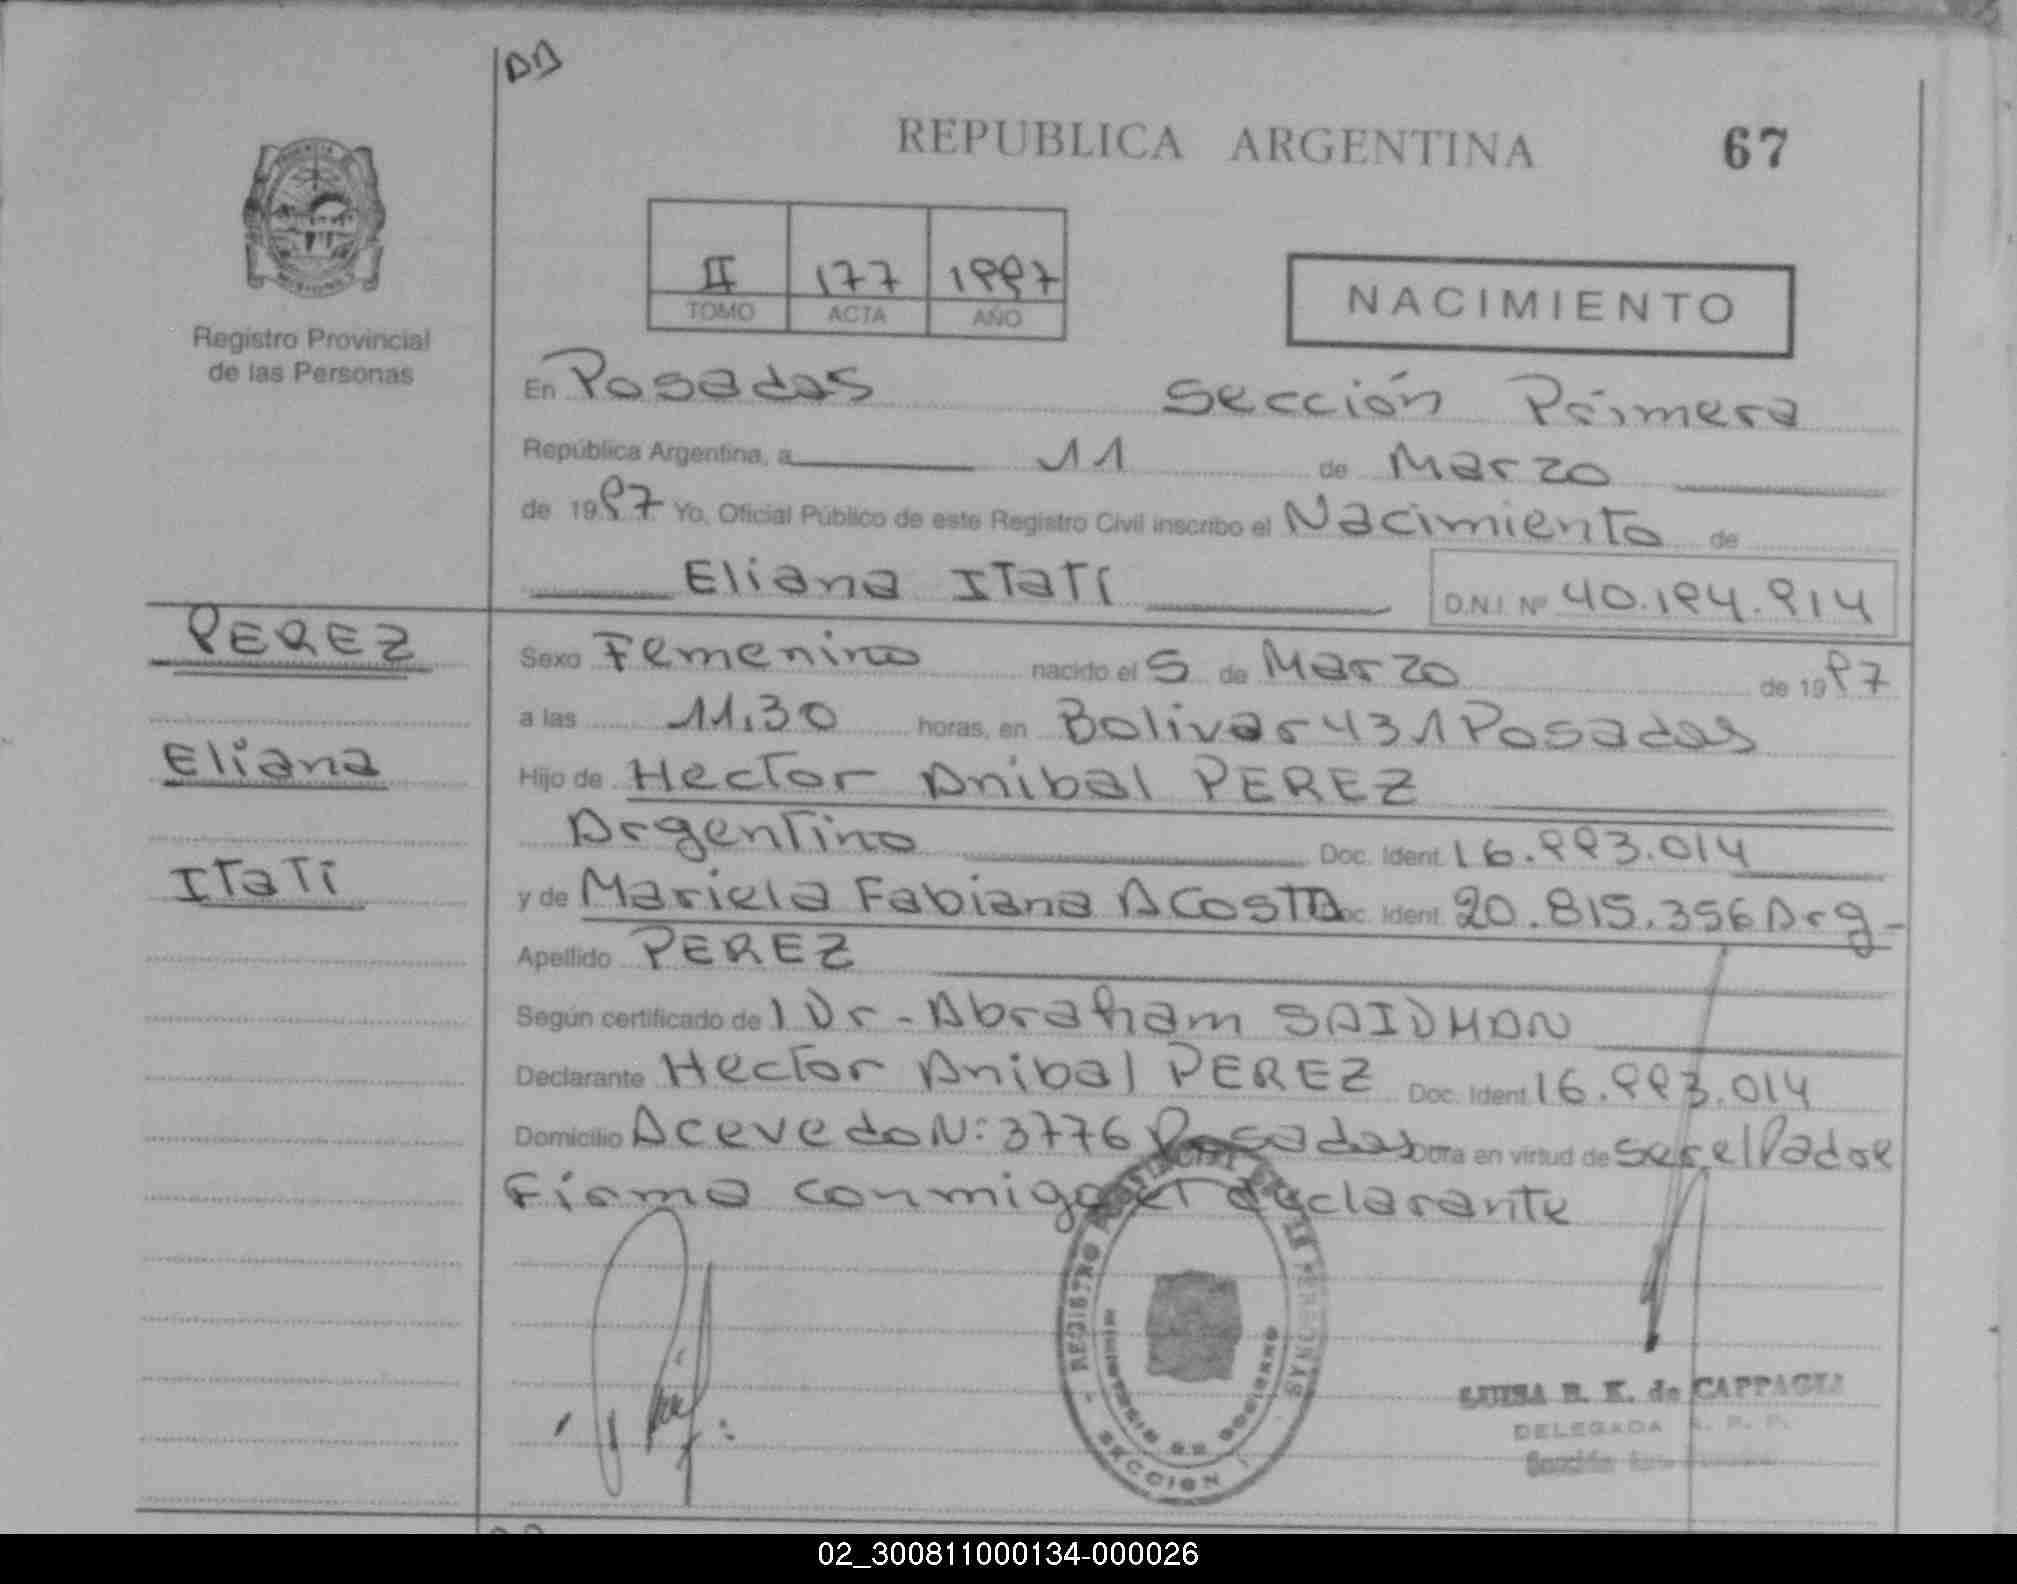 REPUBLICA ARGENTINA
67
Registro Provincial
de las Personas
II 177 1997
TOMO ACTA AÑO
NACIMIENTO
En Posadas Sección Primera
República Argentina, a 11 de Marzo
de 1997 Yo, Oficial Público de este Registro Civil inscribo el Nacimiento de
Eliana ITaTí D.N.I. Nº 40.194.914
PEREZ
Eliana
ITaTí
Sexo Femenino nacido el 5 de Marzo de 1997
a las 11.30 horas, en Bolivar 431 Posadas
Hijo de Hector Anibal PEREZ
Argentino Doc. Ident. 16.993.014
y de Mariela Fabiana ACOSTA Doc. Ident. 20.815.356 Arg-
Apellido PEREZ
Según certificado de l Dr - Abraham SAIDMAN
Declarante Hector Anibal PEREZ Doc. Ident. 16.993.014
Domicilio Acevedo N: 3776 Posadas Obra en virtud de ser el Padre
Firma conmigo el declarante
REGISTRO PROVINCIAL DE LAS PERSONAS
MINISTERIO DE GOBIERNO
SECCION
LUISA R. K. de CAPPAGLI
DELEGADA R. P. P.
02_300811000134-000026